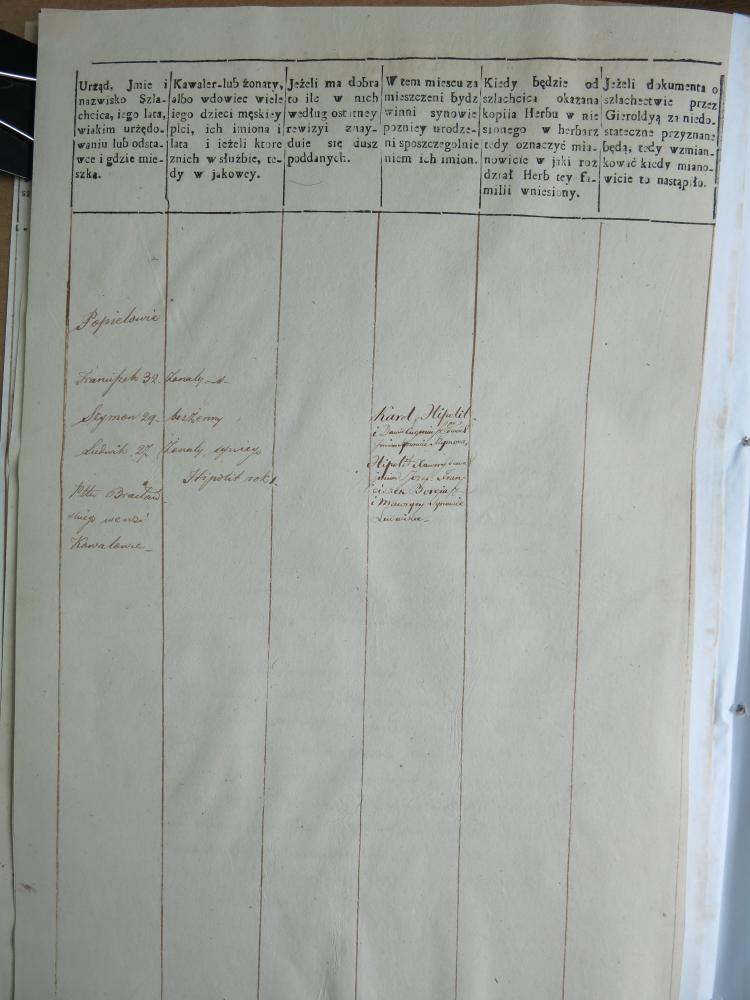 Urząd, Jmie i
nazwisko Szla-
chcica, iego lata,
wiakim urzędo-
waniu lub odsta-
wce i gdzie mie-
szka.
Kawaler-lub żonaty,
albo wdowiec wiele
iego dzieci męskiey
płci, ich imiona i
lata i ieżeli ktore
znich w służbie, te-
dy w jakowey.
Jeżeli ma dobra
to ile w nich
według ostatney
rewizyi znay-
duie się dusz
poddanych.
W tem miescu za
mieszczeni bydz
winni synowie
pozniey urodze-
ni sposzczegolnie
niem ich imion.
Kiedy będzie od
szlachcica okazana
kopiia Herbu w nie
sionego w herbarz
tedy oznaczyć mia-
nowicie w jaki roz
dział Herb tey fa-
milii wniesiony.
Jeżeli dokumenta o
szlachectwie przez
Gieroldyą za niedo-
stateczne przyznane
będą, tedy wzmian-
kować kiedy miano-
wicie to nastąpiło.
Popielowie
Franciszek 32. żonaty
Szymon 29. bezżenny
Ludwik 27. żonaty syniego
Hipolit rok 1.
Pttu Bracław
skiego wewsi
Kowalowie
Karol, Hipolit
Synowie Szymona,
Hipolit
Borgia
i Maurycy Synowie
Ludwika